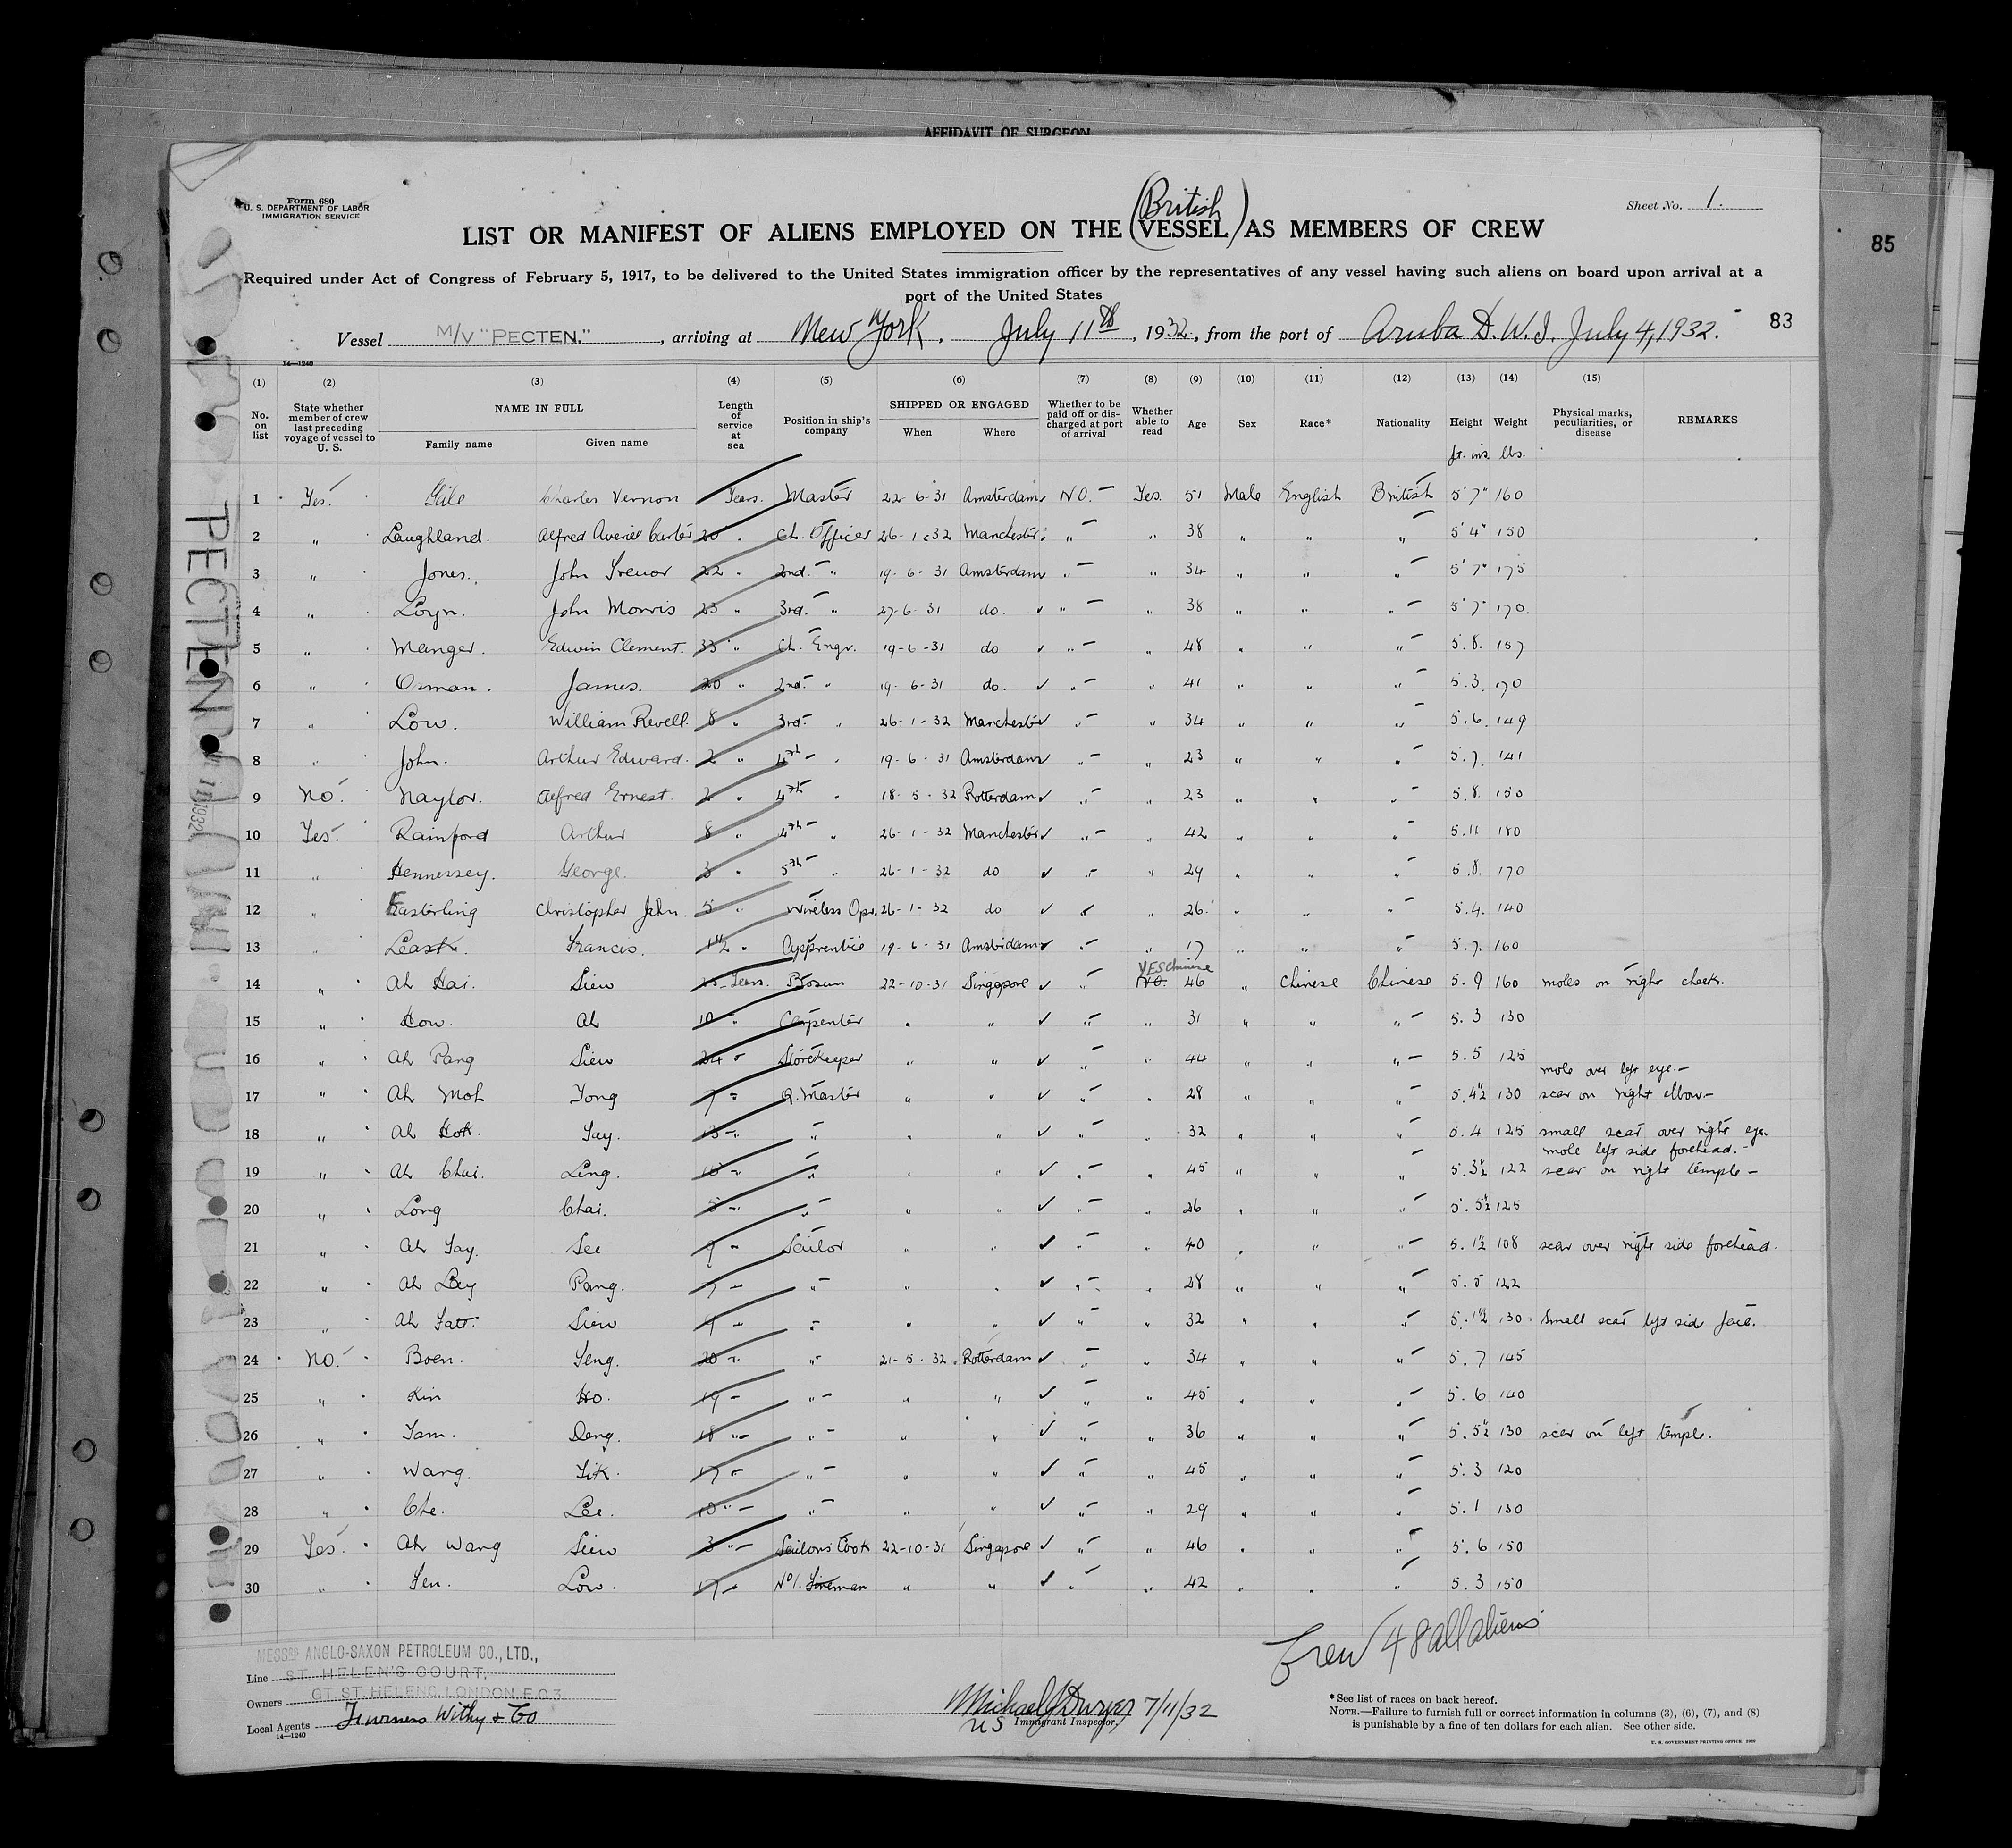 AFFIDAVIT OF SURGEON
Form 680
U. S. DEPARTMENT OF LABOR
IMMIGRATION SERVICE
Sheet No. 1.
(British)
LIST OR MANIFEST OF ALIENS EMPLOYED ON THE VESSEL AS MEMBERS OF CREW
85
Required under Act of Congress of February 5, 1917, to be delivered to the United States immigration officer by the representatives of any vessel having such aliens on board upon arrival at a
port of the United States
Vessel M/V "PECTEN.", arriving at New York, July 11th, 1932, from the port of Aruba D.W.I. July 4, 1932. 83
14—1240
(1) (2) (3) (4) (5) (6) (7) (8) (9) (10) (11) (12) (13) (14) (15)
No. on list State whether member of crew last preceding voyage of vessel to U. S. NAME IN FULL Family name Given name Length of service at sea Position in ship's company SHIPPED OR ENGAGED When Where Whether to be paid off or discharged at port of arrival Whether able to read Age Sex Race* Nationality Height Weight Physical marks, peculiarities, or disease REMARKS
ft. ins. lbs.
1 Yes. Charles Vernon Years. Master 22-6-31 Amsterdam NO. Yes. 51 Male English British 5'7" 160
2 " Laughland. Alfred Averill Carter 20 " Ch. Officer 26-1-32 Manchester " " 38 " " " 5'4" 150
3 " Jones. John Trevor 22 " 2nd. " 19-6-31 Amsterdam " " 34 " " " 5'7" 175
4 " Loyn. John Morris 23 " 3rd. " 27-6-31 do. " " 38 " " " 5'7" 170.
5 " Manger. Edwin Clement. 33 " Ch. Engr. 19-6-31 do " " 48 " " " 5.8. 157
6 " Osman. James. 20 " 2nd. " 19-6-31 do. " " 41 " " " 5.3. 170
7 " Low. William Revell. 8 " 3rd. " 26-1-32 Manchester " " 34 " " " 5.6. 149
8 " John. Arthur Edward. 2 " 4th " 19-6-31 Amsterdam " " 23 " " " 5.7. 141
9 No. Naylor. Alfred Ernest. 2 " 4th " 18-5-32 Rotterdam " " 23 " " " 5.8. 150
10 Yes. Rainford Arthur 8 " 4th " 26-1-32 Manchester " " 42 " " " 5.11 180
11 " Hennessey. George. 3 " 5th " 26-1-32 do " " 29 " " " 5.8. 170
12 " Easterling Christopher John. 5 " Wireless Opr. 26-1-32 do " " 26. " " " 5.4. 140
13 " Francis. 1 1/2 " Apprentice 19-6-31 Amsterdam " " 17 " " " 5.7. 160
YES Chinese
14 " Ah Hai. Siew Years. Bosun 22-10-31 Singapore " NO. 46 " Chinese Chinese 5.9 160 moles on right cheek.
15 " How. Ah 10 " Carpenter " " " " 31 " " " 5.3 130
16 " Ah Pang Siew 24 " Storekeeper " " " " 44 " " " 5.5 125
mole over left eye.—
17 " Ah Moh Tong 7 " Q. Master " " " " 28 " " " 5.4½ 130 scar on right elbow—
18 " Ah Hok. 13 " " " " " " 32 " " " 5.4 125 small scar over right eye.
mole left side forehead.—
19 " Ah Chai. Ling. " " " " " " 45 " " " 5.3½ 122 scar on right temple—
20 " Long Chai. 5 " " " " " " 26 " " " 5.5½ 125
21 " See 9 " Sailor " " " " 40 " " " 5.1½ 108 scar over right side forehead.
22 " Ah Pang. 7 " " " " " " 28 " " " 5.5 122
23 " Ah Siew " " " " " " 32 " " " 5.1½ 130 Small scar left side face.
24 No. Boen. 20 " " 21-5-32 Rotterdam " " 34 " " " 5.7 145
25 " Kin Ho. 19 " " " " " " 45 " " " 5.6 140
26 " Deng. 18 " " " " " " 36 " " " 5.5½ 130 scar on left temple.
27 " Wang. 17 " " " " " " 45 " " " 5.3 120
28 " Che. Lee. 10 " " " " " " 29 " " " 5.1 130
29 Yes. Ah Wang Siew 3 " Sailors Cook 22-10-31 Singapore " " 46 " " " 5.6 150
30 " Low. 17 " No 1. Fireman " " " " 42 " " " 5.3 150
Crew 48 all aliens
MESSRS ANGLO-SAXON PETROLEUM CO., LTD.,
Line ST. HELEN'S COURT,
Owners GT. ST. HELENS, LONDON, E.C.3
Local Agents Furness Withy & Co
14—1240
Michael J Dwyer 7/11/32
US Immigrant Inspector.
*See list of races on back hereof.
NOTE.—Failure to furnish full or correct information in columns (3), (6), (7), and (8)
is punishable by a fine of ten dollars for each alien. See other side.
U. S. GOVERNMENT PRINTING OFFICE
PECTEN